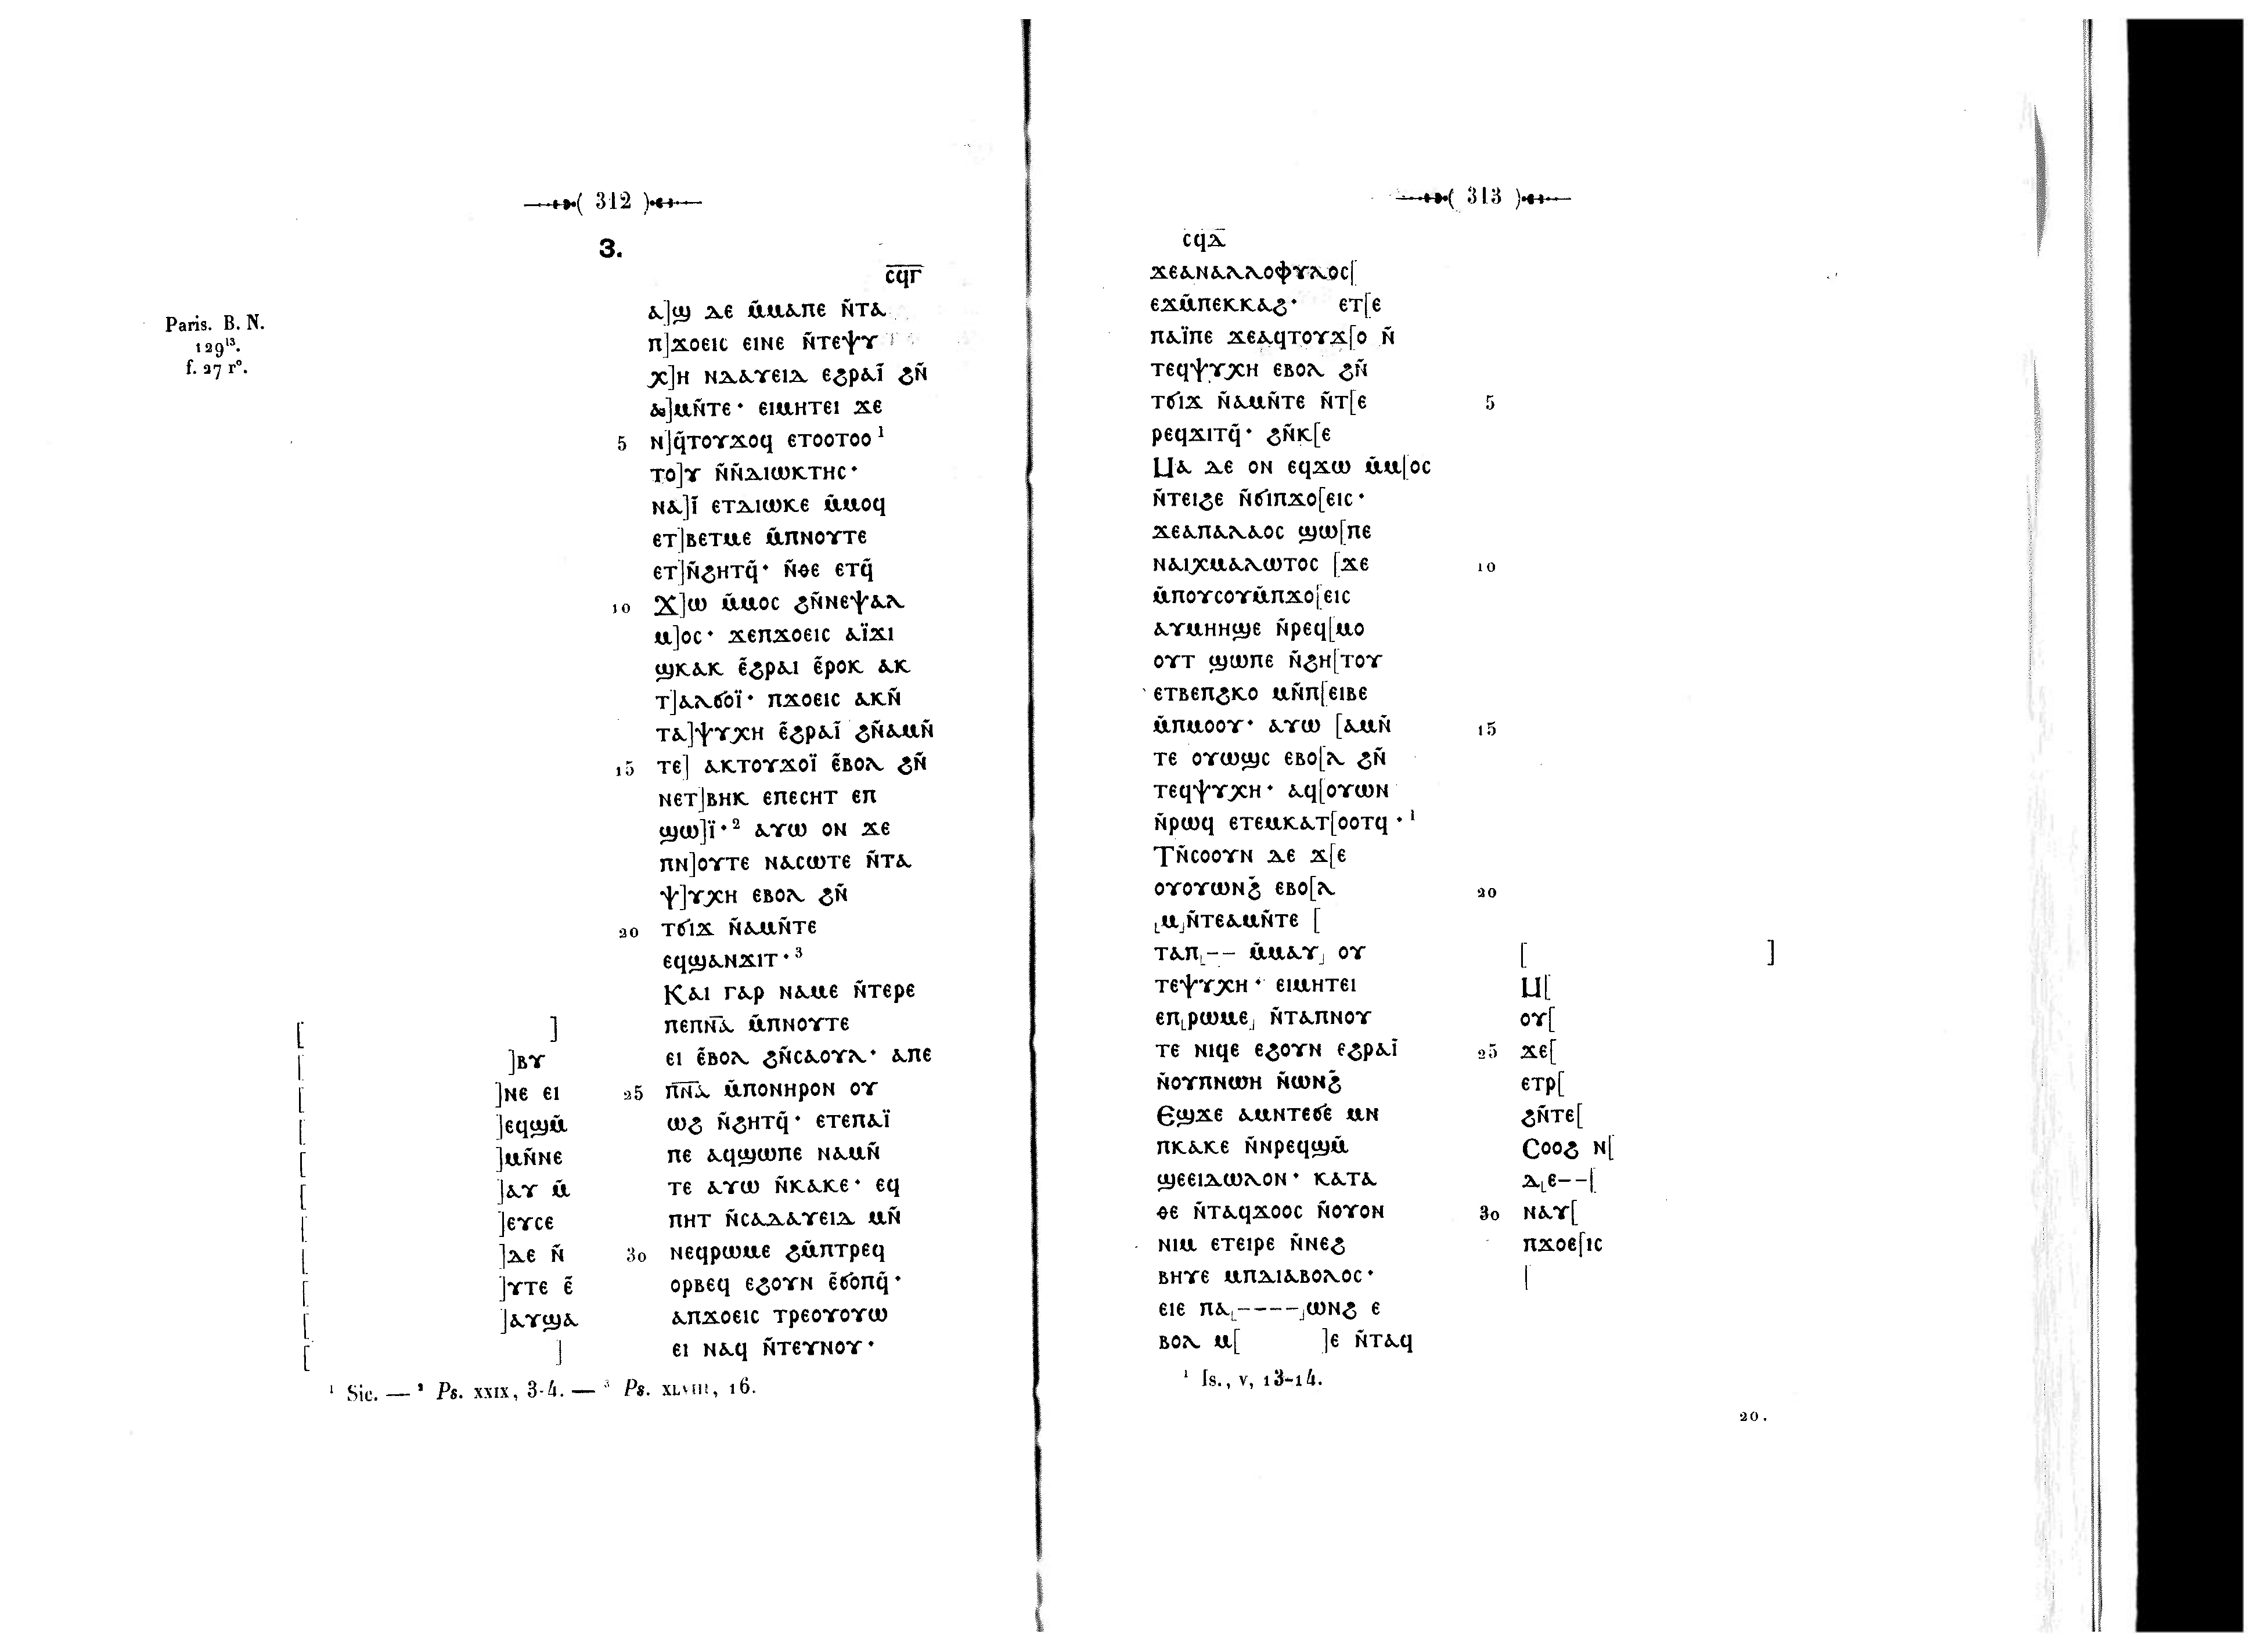 312
3.
ⲥϥⲅ̅
Paris. B. N.
129¹³.
f. 27 r°.
[ ]
[ ]ⲃⲩ
[ ]ⲛⲉ ⲉⲓ
[ ]ⲉϥϣⲙ̄
[ ]ⲙⲛ̄ⲛⲉ
[ ]ⲁⲩ ⲙ̄
[ ]ⲉⲩⲥⲉ
[ ]ⲇⲉ ⲛ̄
[ ]ⲩⲧⲉ ⲉ̄
[ ]ⲁⲩϣⲁ
[ ]
ⲁ]ϣ ⲇⲉ ⲙ̄ⲙⲁⲡⲉ ⲛ̄ⲧⲁ
ⲡ]ϫⲟⲉⲓⲥ ⲉⲓⲛⲉ ⲛ̄ⲧⲉⲯⲩ
ⲭ]ⲏ ⲛⲇⲁⲩⲉⲓⲇ ⲉϩⲣⲁⲓ̈ ϩⲛ̄
ⲁ]ⲙⲛ̄ⲧⲉ· ⲉⲓⲙⲏⲧⲉⲓ ϫⲉ
5 ⲛ]ϥ̄ⲧⲟⲩϫⲟϥ ⲉⲧⲟⲟⲧⲟⲟ¹
ⲧⲟ]ⲩ ⲛ̄ⲛ̄ⲇⲓⲱⲕⲧⲏⲥ·
ⲛⲁ]ⲓ̈ ⲉⲧⲇⲓⲱⲕⲉ ⲙ̄ⲙⲟϥ
ⲉⲧ]ⲃⲉⲧⲙⲉ ⲙ̄ⲡⲛⲟⲩⲧⲉ
ⲉⲧ]ⲛ̄ϩⲏⲧϥ̄· ⲛ̄ⲑⲉ ⲉⲧϥ̄
10 Ϫ]ⲱ ⲙ̄ⲙⲟⲥ ϩⲛ̄ⲛⲉⲯⲁⲗ
ⲙ]ⲟⲥ· ϫⲉⲡϫⲟⲉⲓⲥ ⲁⲓ̈ϫⲓ
ϣⲕⲁⲕ ⲉ̄ϩⲣⲁⲓ ⲉ̄ⲣⲟⲕ ⲁⲕ
ⲧ]ⲁⲗϭⲟⲓ̈· ⲡϫⲟⲉⲓⲥ ⲁⲕⲛ̄
ⲧⲁ]ⲯⲩⲭⲏ ⲉ̄ϩⲣⲁⲓ̈ ϩⲛ̄ⲁⲙⲛ̄
15 ⲧⲉ] ⲁⲕⲧⲟⲩϫⲟⲓ̈ ⲉ̄ⲃⲟⲗ ϩⲛ̄
ⲛⲉⲧ]ⲃⲏⲕ ⲉⲡⲉⲥⲏⲧ ⲉⲡ
ϣⲱ]ⲓ̈·² ⲁⲩⲱ ⲟⲛ ϫⲉ
ⲡⲛ]ⲟⲩⲧⲉ ⲛⲁⲥⲱⲧⲉ ⲛ̄ⲧⲁ
ⲯ]ⲩⲭⲏ ⲉⲃⲟⲗ ϩⲛ̄
20 ⲧϭⲓϫ ⲛ̄ⲁⲙⲛ̄ⲧⲉ
ⲉϥϣⲁⲛϫⲓⲧ·³
Ⲕⲁⲓ ⲅⲁⲣ ⲛⲁⲙⲉ ⲛ̄ⲧⲉⲣⲉ
ⲡⲉⲡⲛ̅ⲁ̅ ⲙ̄ⲡⲛⲟⲩⲧⲉ
ⲉⲓ ⲉ̄ⲃⲟⲗ ϩⲛ̄ⲥⲁⲟⲩⲗ· ⲁⲡⲉ
25 ⲡ̅ⲛ̅ⲁ̅ ⲙ̄ⲡⲟⲛⲏⲣⲟⲛ ⲟⲩ
ⲱϩ ⲛ̄ϩⲏⲧϥ̄· ⲉⲧⲉⲡⲁⲓ̈
ⲡⲉ ⲁϥϣⲱⲡⲉ ⲛⲁⲙⲛ̄
ⲧⲉ ⲁⲩⲱ ⲛ̄ⲕⲁⲕⲉ· ⲉϥ
ⲡⲏⲧ ⲛ̄ⲥⲁⲇⲁⲩⲉⲓⲇ ⲙⲛ̄
30 ⲛⲉϥⲣⲱⲙⲉ ϩⲙ̄ⲡⲧⲣⲉϥ
ⲟⲣⲃⲉϥ ⲉϩⲟⲩⲛ ⲉ̄ϭⲟⲡϥ̄·
ⲁⲡϫⲟⲉⲓⲥ ⲧⲣⲉⲟⲩⲟⲩⲱ
ⲉⲓ ⲛⲁϥ ⲛ̄ⲧⲉⲩⲛⲟⲩ·
¹ Sic. — ² Ps. XXIX, 3-4. — ³ Ps. XLVIII, 16.
313
ⲥϥⲇ̅
ϫⲉⲁⲛⲁⲗⲗⲟⲫⲩⲗⲟⲥ[
ⲉϫⲙ̄ⲡⲉⲕⲕⲁϩ· ⲉⲧ[ⲉ
ⲡⲁⲓ̈ⲡⲉ ϫⲉⲁϥⲧⲟⲩϫ[ⲟ ⲛ̄
ⲧⲉϥⲯⲩⲭⲏ ⲉⲃⲟⲗ ϩⲛ̄
ⲧϭⲓϫ ⲛ̄ⲁⲙⲛ̄ⲧⲉ ⲛ̄ⲧ[ⲉ 5
ⲣⲉϥϫⲓⲧϥ̄· ϩⲛ̄ⲕ[ⲉ
Ⲙⲁ ⲇⲉ ⲟⲛ ⲉϥϫⲱ ⲙ̄ⲙ[ⲟⲥ
ⲛ̄ⲧⲉⲓϩⲉ ⲛ̄ϭⲓⲡϫⲟ[ⲉⲓⲥ·
ϫⲉⲁⲡⲁⲗⲁⲟⲥ ϣⲱ[ⲡⲉ
ⲛⲁⲓⲭⲙⲁⲗⲱⲧⲟⲥ [ϫⲉ 10
ⲙ̄ⲡⲟⲩⲥⲟⲩⲙ̄ⲡϫⲟ[ⲉⲓⲥ
ⲁⲩⲙⲏⲏϣⲉ ⲛ̄ⲣⲉϥ[ⲙⲟ
ⲟⲩⲧ ϣⲱⲡⲉ ⲛ̄ϩⲏ[ⲧⲟⲩ
ⲉⲧⲃⲉⲡϩⲕⲟ ⲙⲛ̄ⲡ[ⲉⲓⲃⲉ
ⲙ̄ⲡⲙⲟⲟⲩ· ⲁⲩⲱ [ⲁⲙⲛ̄ 15
ⲧⲉ ⲟⲩⲱϣⲥ ⲉⲃⲟ[ⲗ ϩⲛ̄
ⲧⲉϥⲯⲩⲭⲏ· ⲁϥ[ⲟⲩⲱⲛ
ⲛ̄ⲣⲱϥ ⲉⲧⲉⲙⲕⲁⲧ[ⲟⲟⲧϥ·¹
Ⲧⲛ̄ⲥⲟⲟⲩⲛ ⲇⲉ ϫ[ⲉ
ⲟⲩⲟⲩⲱⲛϩ̄ ⲉⲃⲟ[ⲗ 20
⸤ⲙ⸥ⲛ̄ⲧⲉⲁⲙⲛ̄ⲧⲉ [
ⲧⲁⲡ⸤-- ⲙ̄ⲙⲁⲩ⸥ ⲟⲩ
ⲧⲉⲯⲩⲭⲏ· ⲉⲓⲙⲏⲧⲉⲓ
ⲉⲡ⸤ⲣⲱⲙⲉ⸥ ⲛ̄ⲧⲁⲡⲛⲟⲩ
ⲧⲉ ⲛⲓϥⲉ ⲉϩⲟⲩⲛ ⲉϩⲣⲁⲓ̈ 25
ⲛ̄ⲟⲩⲡⲛⲱⲏ ⲛ̄ⲱⲛϩ̄
Ⲉϣϫⲉ ⲁⲙⲛⲧⲉϭⲉ ⲙⲛ
ⲡⲕⲁⲕⲉ ⲛ̄ⲛⲣⲉϥϣⲙ̄
ϣⲉⲉⲓⲇⲱⲗⲟⲛ· ⲕⲁⲧⲁ
ⲑⲉ ⲛ̄ⲧⲁϥϫⲟⲟⲥ ⲛ̄ⲟⲩⲟⲛ 30
ⲛⲓⲙ ⲉⲧⲉⲓⲣⲉ ⲛ̄ⲛⲉϩ
ⲃⲏⲩⲉ ⲙⲡⲇⲓⲁⲃⲟⲗⲟⲥ·
ⲉⲓⲉ ⲡⲁ⸤----⸥ⲱⲛϩ ⲉ
ⲃⲟⲗ ⲙ[ ]ⲉ ⲛ̄ⲧⲁϥ
[ ]
Ⲙ[
ⲟⲩ[
ϫⲉ[
ⲉⲧⲣ[
ϩⲛ̄ⲧⲉ[
Ⲥⲟⲟϩ ⲛ[
ⲇ⸤ⲉ--[
ⲛⲁⲩ[
ⲡϫⲟⲉ[ⲓⲥ
[
¹ Is., V, 13-14.
20.